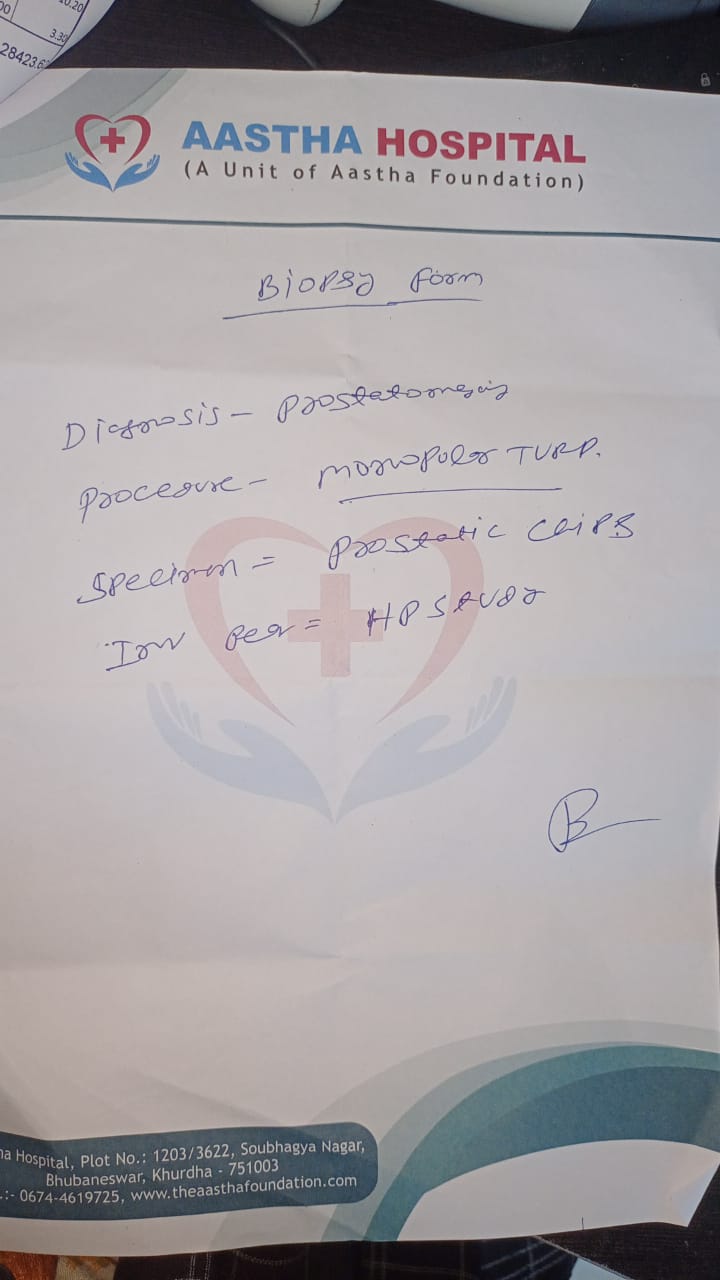 00
10.20
3.30
28423.6
AASTHA HOSPITAL
(A Unit of Aastha Foundation)
Biopsy Form
Diagnosis - Prostatomegaly
Procedure - Monopolar TURP.
Specimen = Prostatic Chips
Inv = HP Study
B
na Hospital, Plot No.: 1203/3622, Soubhagya Nagar,
Bhubaneswar, Khurdha - 751003
.:- 0674-4619725, www.theaasthafoundation.com